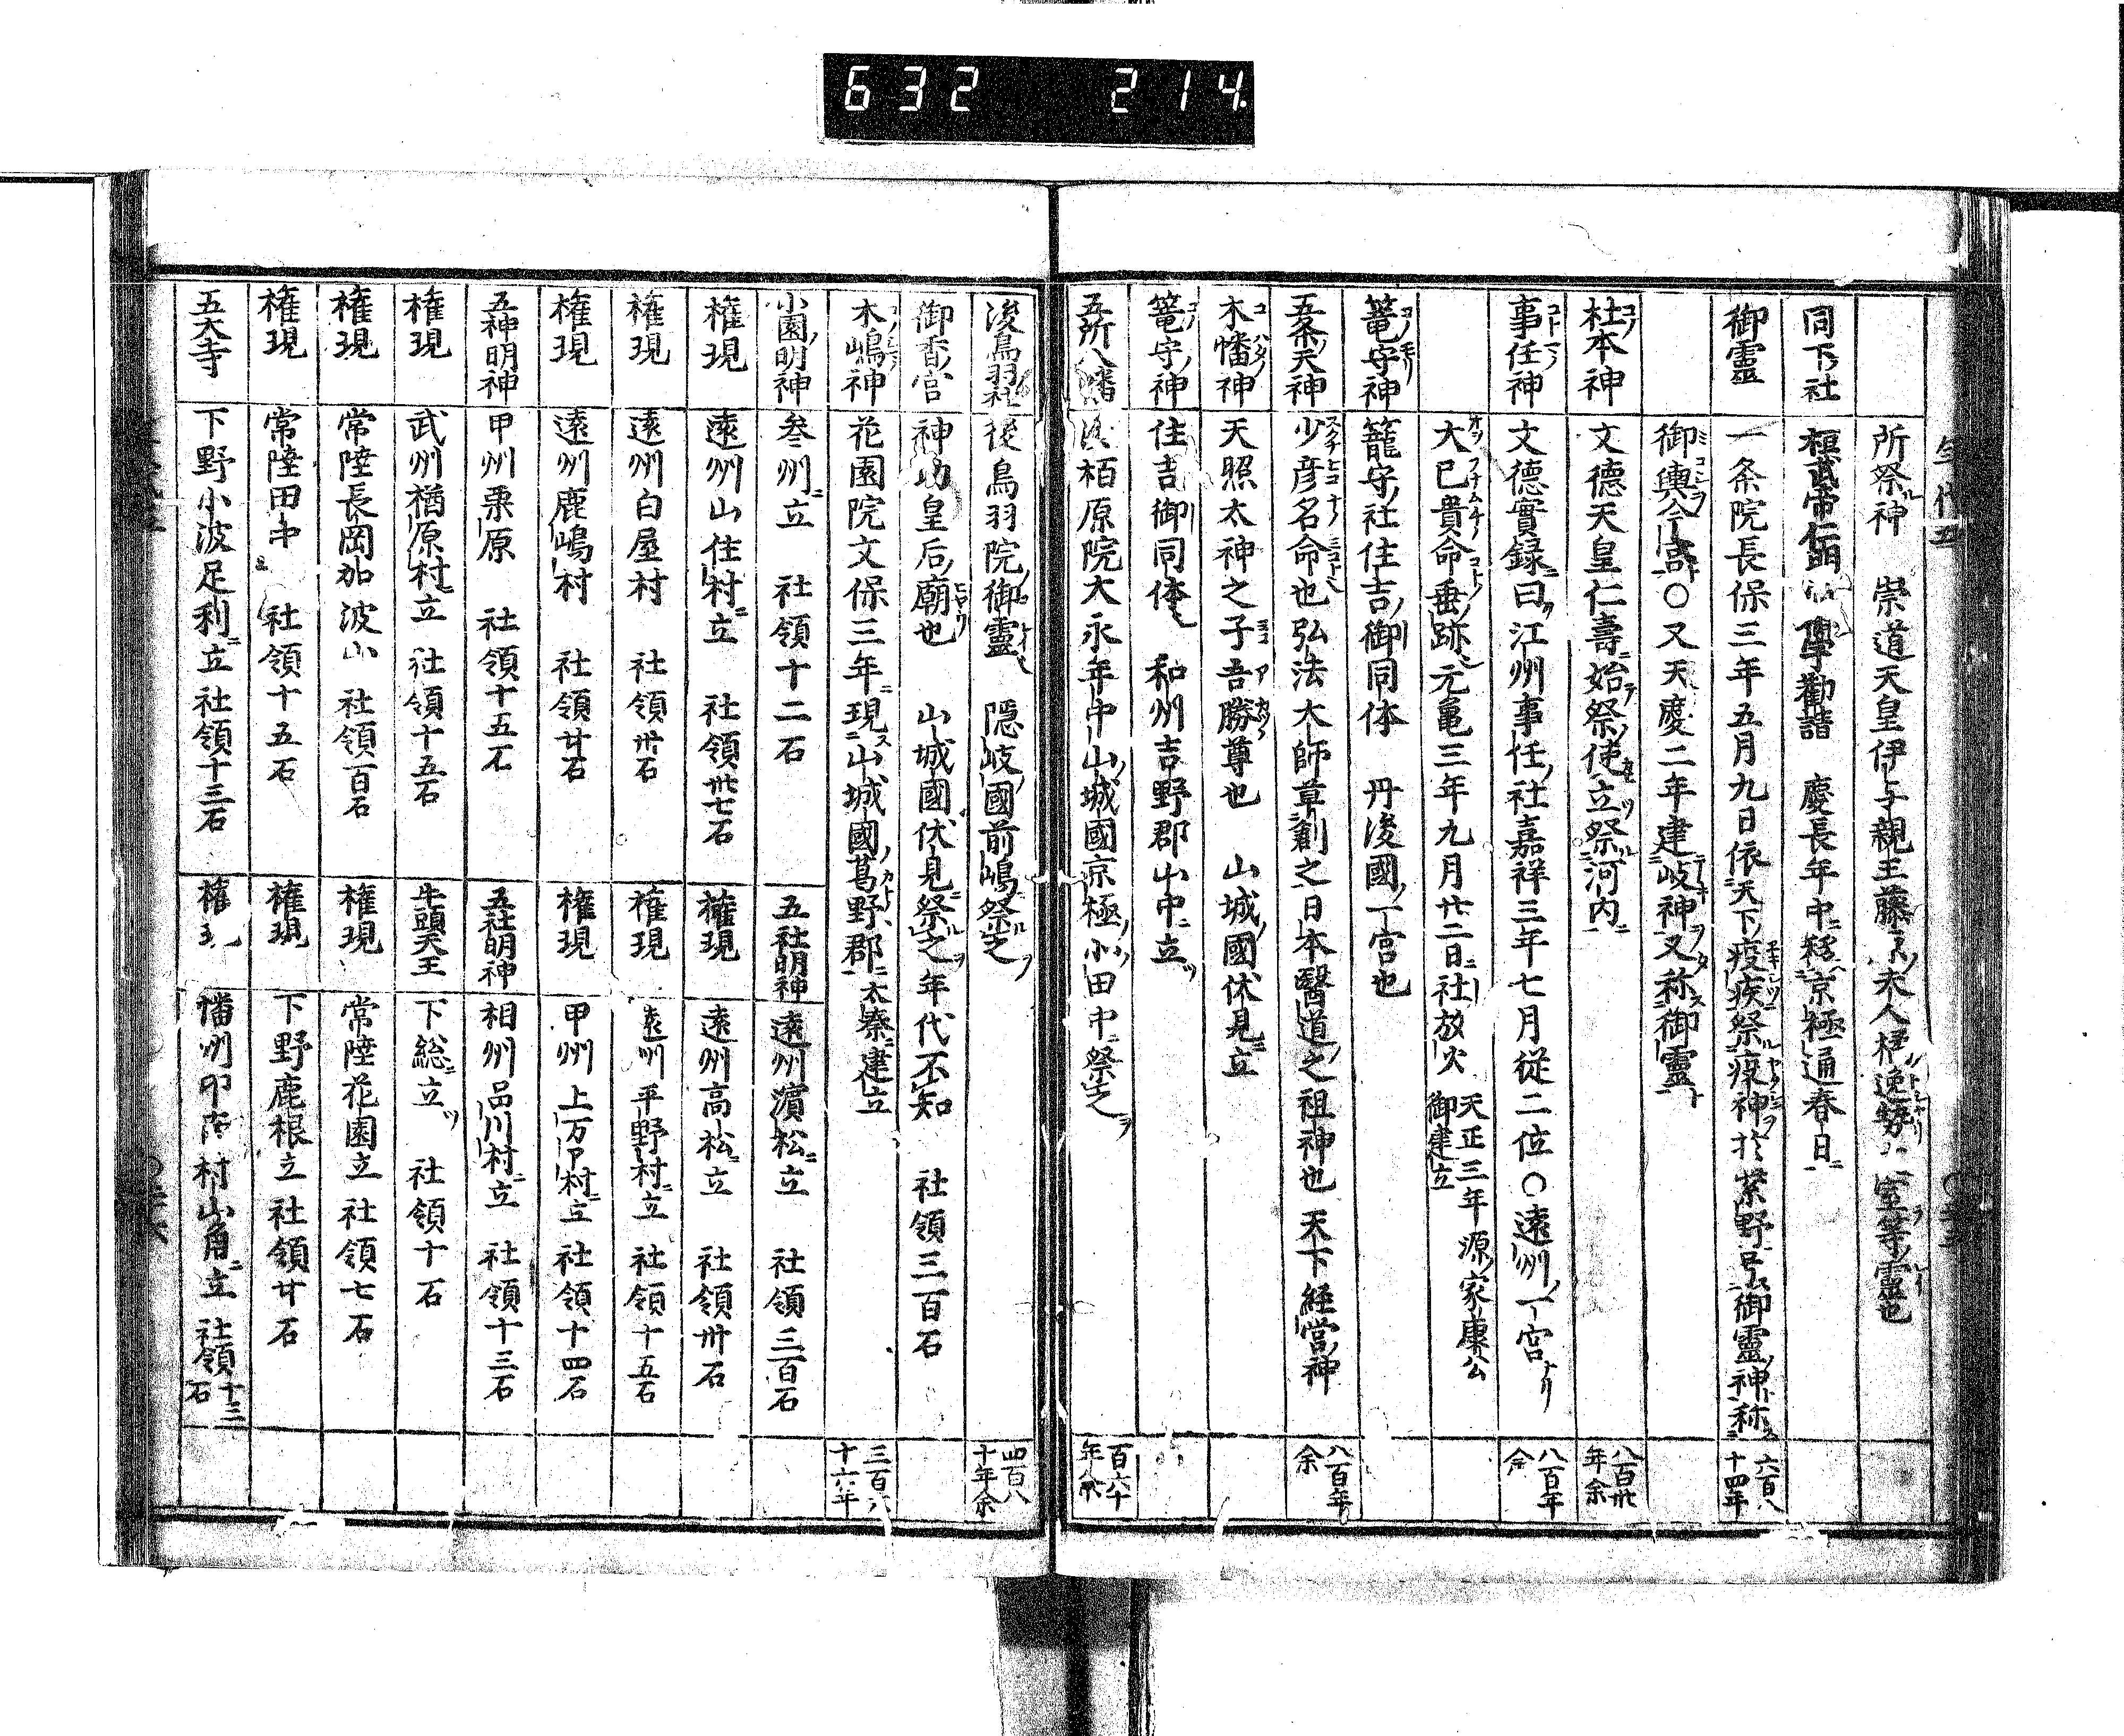 632 214
所祭神 崇道天皇伊予親王藤 夫人橘逸勢 室等ノ靈也
同下社 桓武帝仁明 勸請 慶長年中ニ移京極通春日ニ
御靈 一条院長保三年五月九日依天下疫疾祭疫神於紫野号御靈ノ神称 六百八十四年
御輿今宮○又天慶二年建岐神又称御靈ト
杜本神 文德天皇仁壽ニ始祭使立祭河内ニ 八百卅年余
事任神 文德實録ニ曰江州事任ノ社嘉祥三年七月從二位○遠州ノ一宮ナリ 八百年余
大已貴命垂跡元亀三年九月廿二日ニ社放火 天正三年源ノ家康公御建立
篭守神 籠守ノ社住吉ノ御同体 丹後國ノ一宮也
五条天神 少彦名命也弘法大師草創之日本醫道之祖神也天下経営ノ神 八百年余
木幡神 天照太神之子吾勝尊也 山城ノ國伏見ニ立
篭守ノ神 住吉御同体 和州吉野郡山中ニ立ツ
五所八幡 後柏原院大永年中山城國京極ノ小田中ニ祭之ヲ 百六十年余
後鳥羽社 後鳥羽院ノ御靈 隠岐國前嶋祭之ヲ
四百八十年余
御香ノ宮 神功皇后ノ廟也 山城國伏見祭之年代不知 社領三百石
木嶋神 花園院文保三年ニ現山城國ノ葛野ノ郡ニ太秦建立 三百六十六年
小園ノ明神 参州ニ立 社領十二石 五社明神 遠州濱松ニ立 社領三百石
権現 遠州山住村ニ立 社領卅七石 権現 遠州高松ニ立 社領卅石
権現 遠州白屋村 社領卅石 権現 遠州平野村ニ立 社領十五石
権現 遠州鹿嶋村 社領廿石 権現 甲州上万ア村ニ立 社領十四石
五神明神 甲州栗原 社領十五石 五社明神 相州品川村ニ立 社領十三石
権現 武州楢原村ニ立 社領十五石 牛頭天王 下総ニ立ツ 社領十石
権現 常陸長岡加波山 社領百石 権現 常陸花園立 社領七石
権現 常陸田中 社領十五石 権現 下野鹿根立 社領廿石
五大寺 下野小波足利ニ立 社領十三石 権現 村山角ニ立 社領十三石